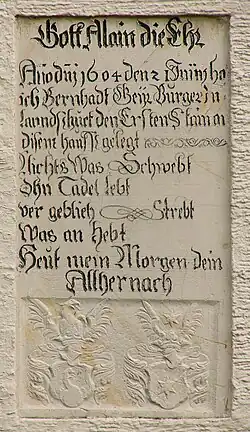 Gott Alain die Ehr
Año dni 1604 den 2 Junij ho
ich Bernhadt Geyr Burger in
Lanndßhuet den Ersten Stain an
disem hauss gelegt
Nichts Was Schwebt
Ohn Tadel lebt
ver geblich Strebt
Was an hebt
Heut mein Morgen dein
Allhernach